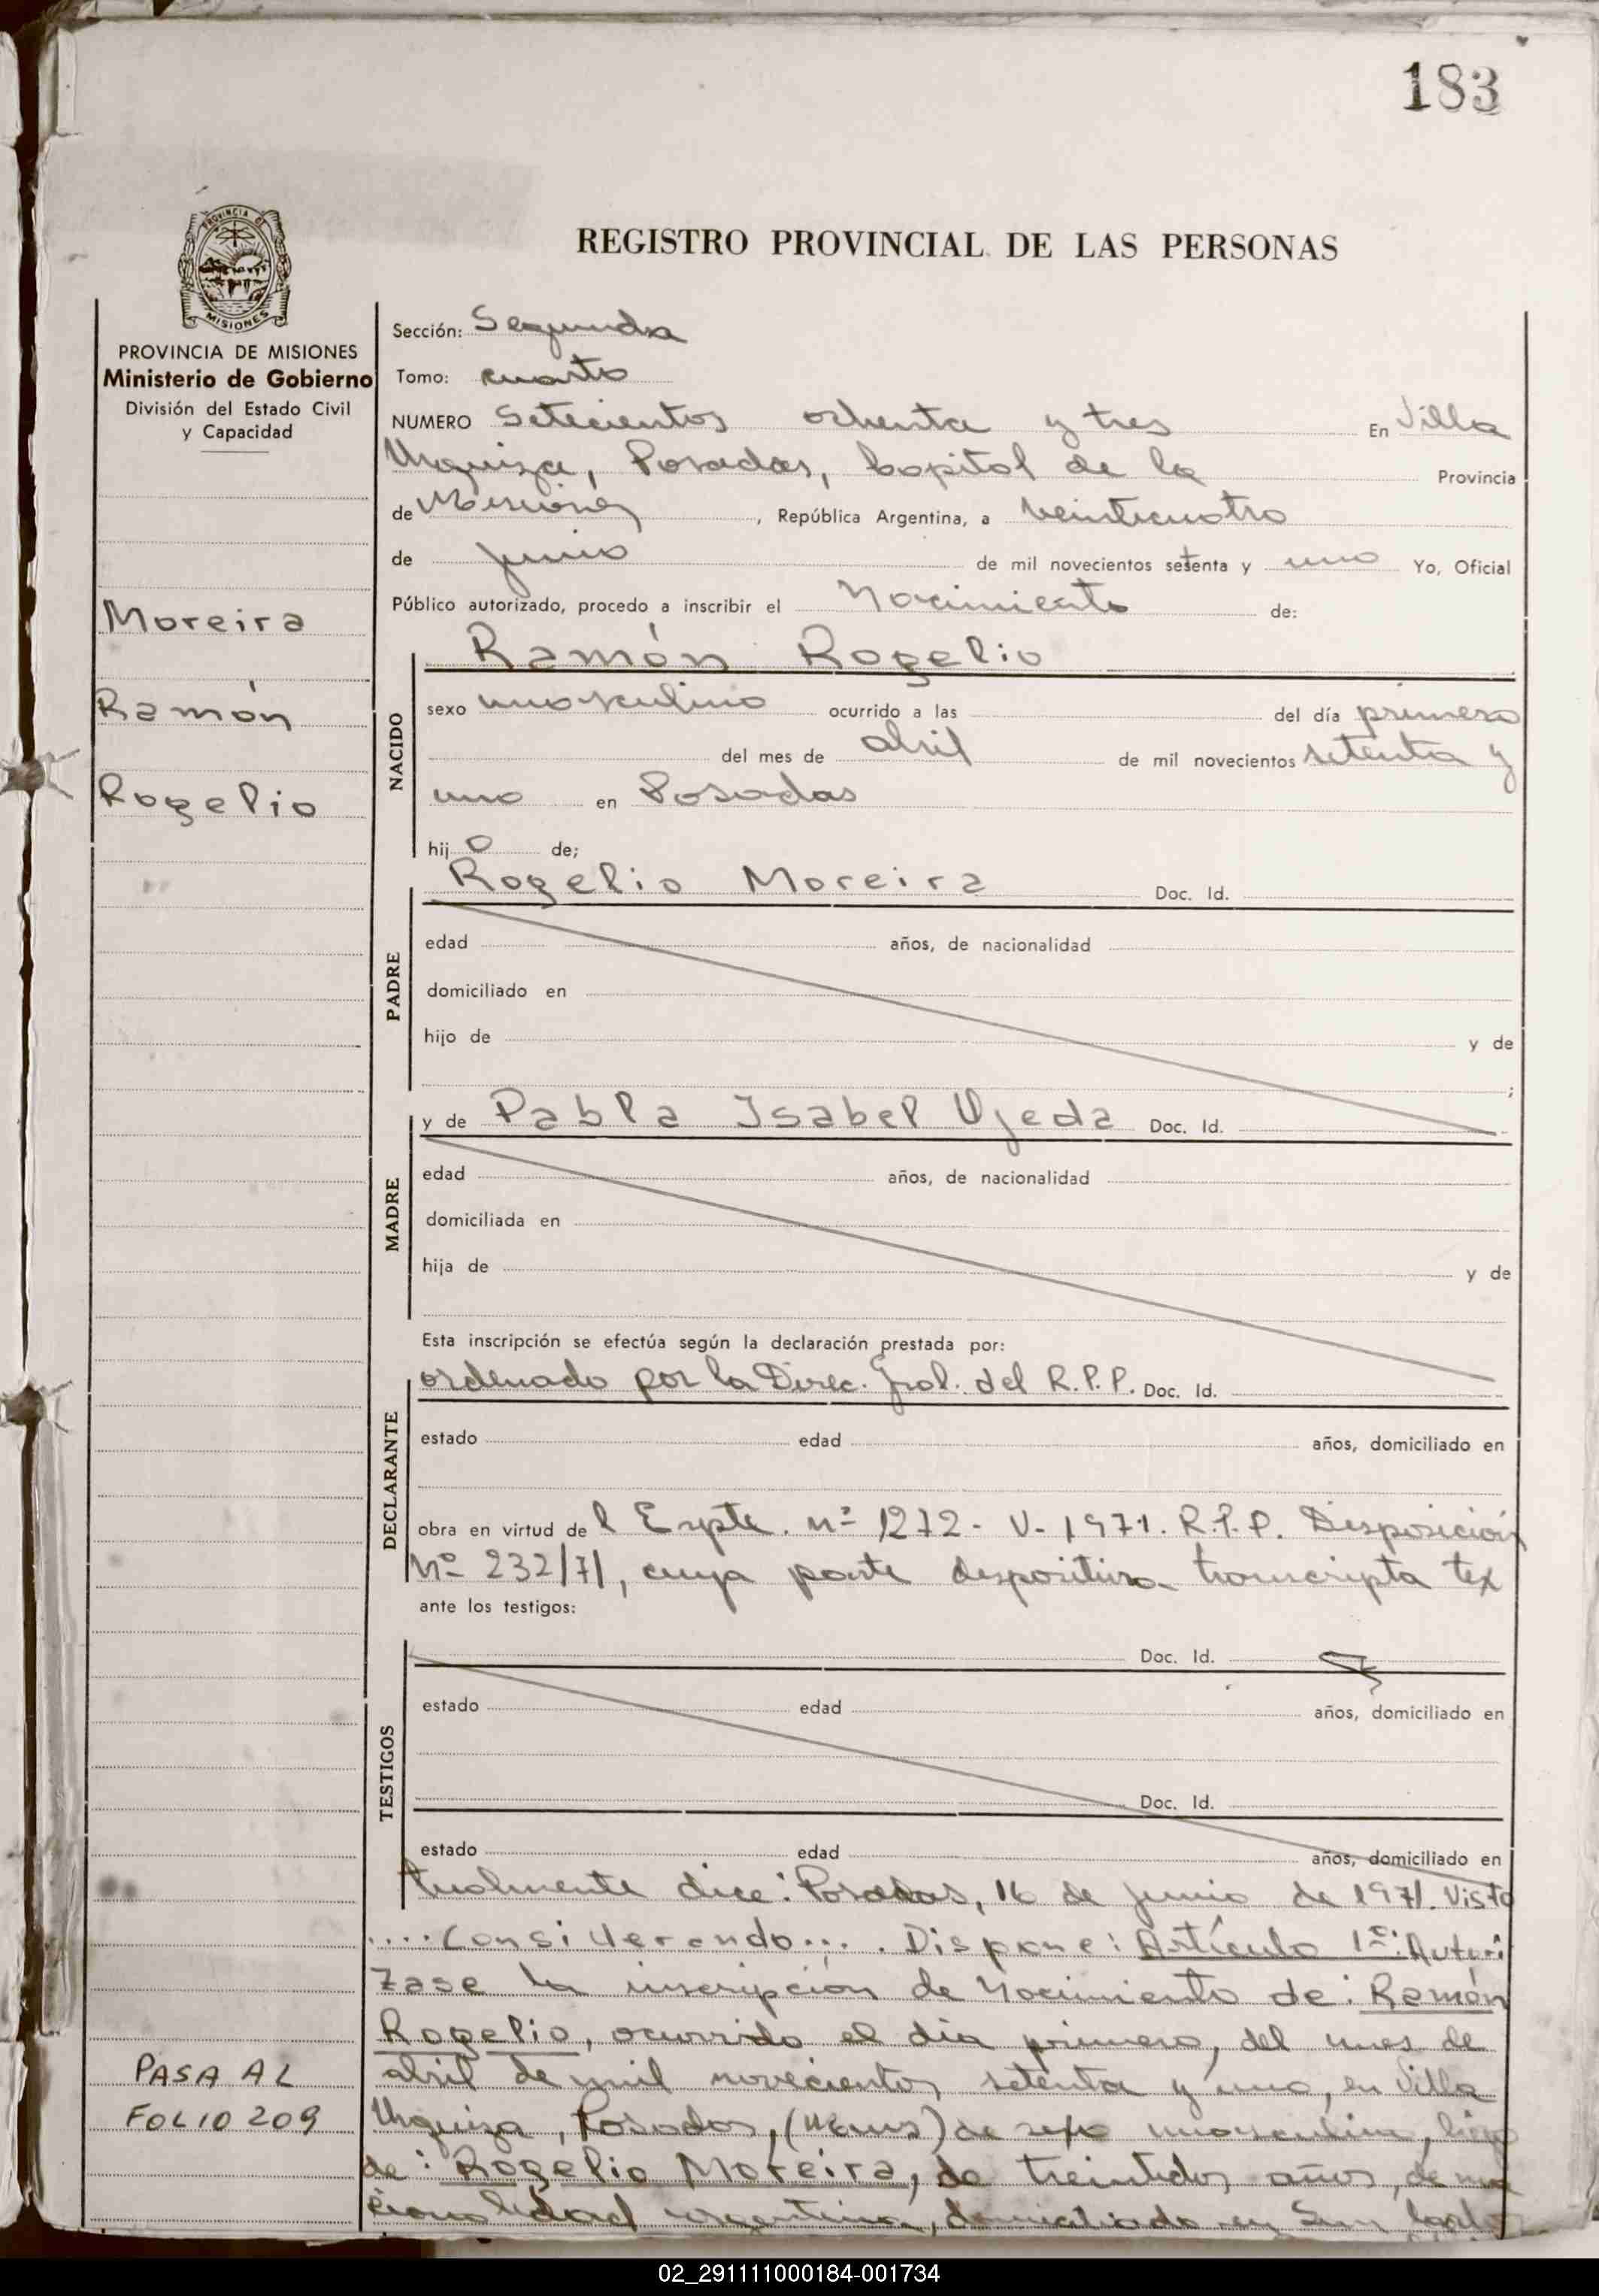 183
PROVINCIA DE
MISIONES
REGISTRO PROVINCIAL DE LAS PERSONAS
PROVINCIA DE MISIONES
Ministerio de Gobierno
División del Estado Civil
y Capacidad
Moreira
Ramón
Rogelio
PASA AL
FOLIO 209
Sección: Segunda
Tomo: cuarto
NUMERO Setecientos ochenta y tres En Villa
Urquiza, Posadas, Capital de la Provincia
de Misiones, República Argentina, a veinticuatro
de junio de mil novecientos setenta y uno Yo, Oficial
Público autorizado, procedo a inscribir el Nacimiento de:
NACIDO
Ramón Rogelio
sexo masculino ocurrido a las del día primero
del mes de abril de mil novecientos setenta y
uno en Posadas
hijo de;
PADRE
Rogelio Moreira Doc. Id.
edad años, de nacionalidad
domiciliado en
hijo de y de
;
MADRE
y de Pabla Isabel Ojeda Doc. Id.
edad años, de nacionalidad
domiciliada en
hija de y de
Esta inscripción se efectúa según la declaración prestada por:
DECLARANTE
ordenado por la Direc. Gral. del R.P.P. Doc. Id.
estado edad años, domiciliado en
obra en virtud del Expte. nº 1272- V-1971. R.P.P. Disposición
Nº 232/71, cuya parte dispositiva transcripta tex
ante los testigos:
TESTIGOS
Doc. Id.
estado edad años, domiciliado en
Doc. Id.
estado edad años, domiciliado en
tualmente dice: Posadas, 16 de junio de 1971. Visto
....Considerando.... Dispone: Artículo 1º: Autori
zase la inscripción de Nacimiento de: Ramón
Rogelio, ocurrido el día primero, del mes de
abril de mil novecientos setenta y uno, en Villa
Urquiza, Posadas, de sexo masculino, hijo
de: Rogelio Moreira, de treintidos años, de na
cionalidad argentina, domiciliado en San
02_291111000184-001734